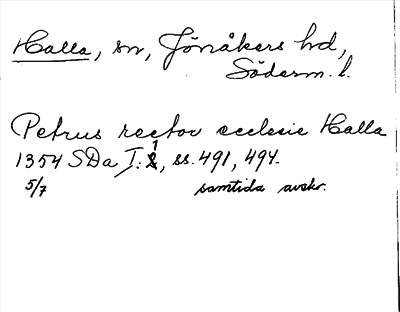 Halla, sn, Jönåkers hd,
Söderm. l.
Petrus rector ecclesie Halla
1354 SDa I:1, ss. 491, 494.
5/7 samtida avskr.